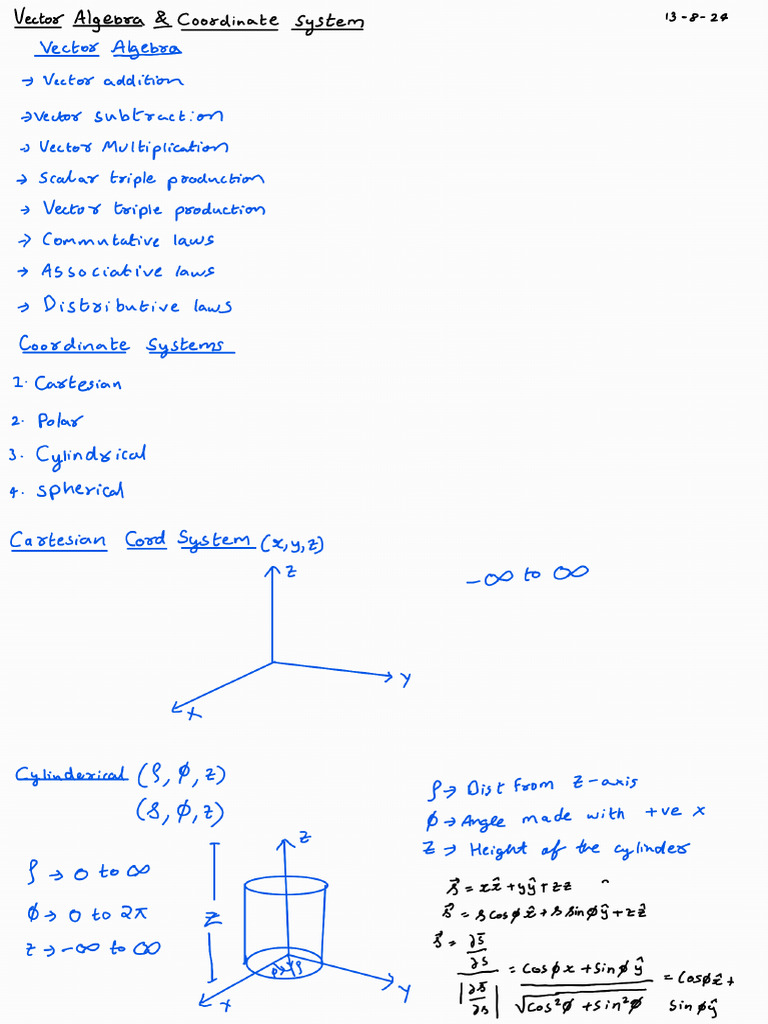 Vector Algebra & Coordinate System 13-8-24
Vector Algebra
→ Vector addition
→ Vector subtraction
→ Vector Multiplication
→ Scalar triple production
→ Vector triple production
→ Commutative laws
→ Associative laws
→ Distributive laws
Coordinate Systems
1. Cartesian
2. Polar
3. Cylindrical
4. Spherical
Cartesian Cord System (x,y,z)
Z
-∞ to ∞
Y
X
Cylinderical (ρ, φ, z)
(s, φ, z)
ρ → Dist from Z-axis
φ → Angle made with +ve x
Z → Height of the cylinder
ρ → 0 to ∞
φ → 0 to 2π
z → -∞ to ∞
Z
Z
φ ρ
X
Y
s⃗ = xx̂ + yŷ + zz ^
s⃗ = s cosφ x̂ + s sinφ ŷ + zẑ
s⃗ = ∂s̄/∂s / |∂s̄/∂s| = cosφx + sinφŷ / √cos²φ + sin²φ = cosφx̂ + sinφŷ